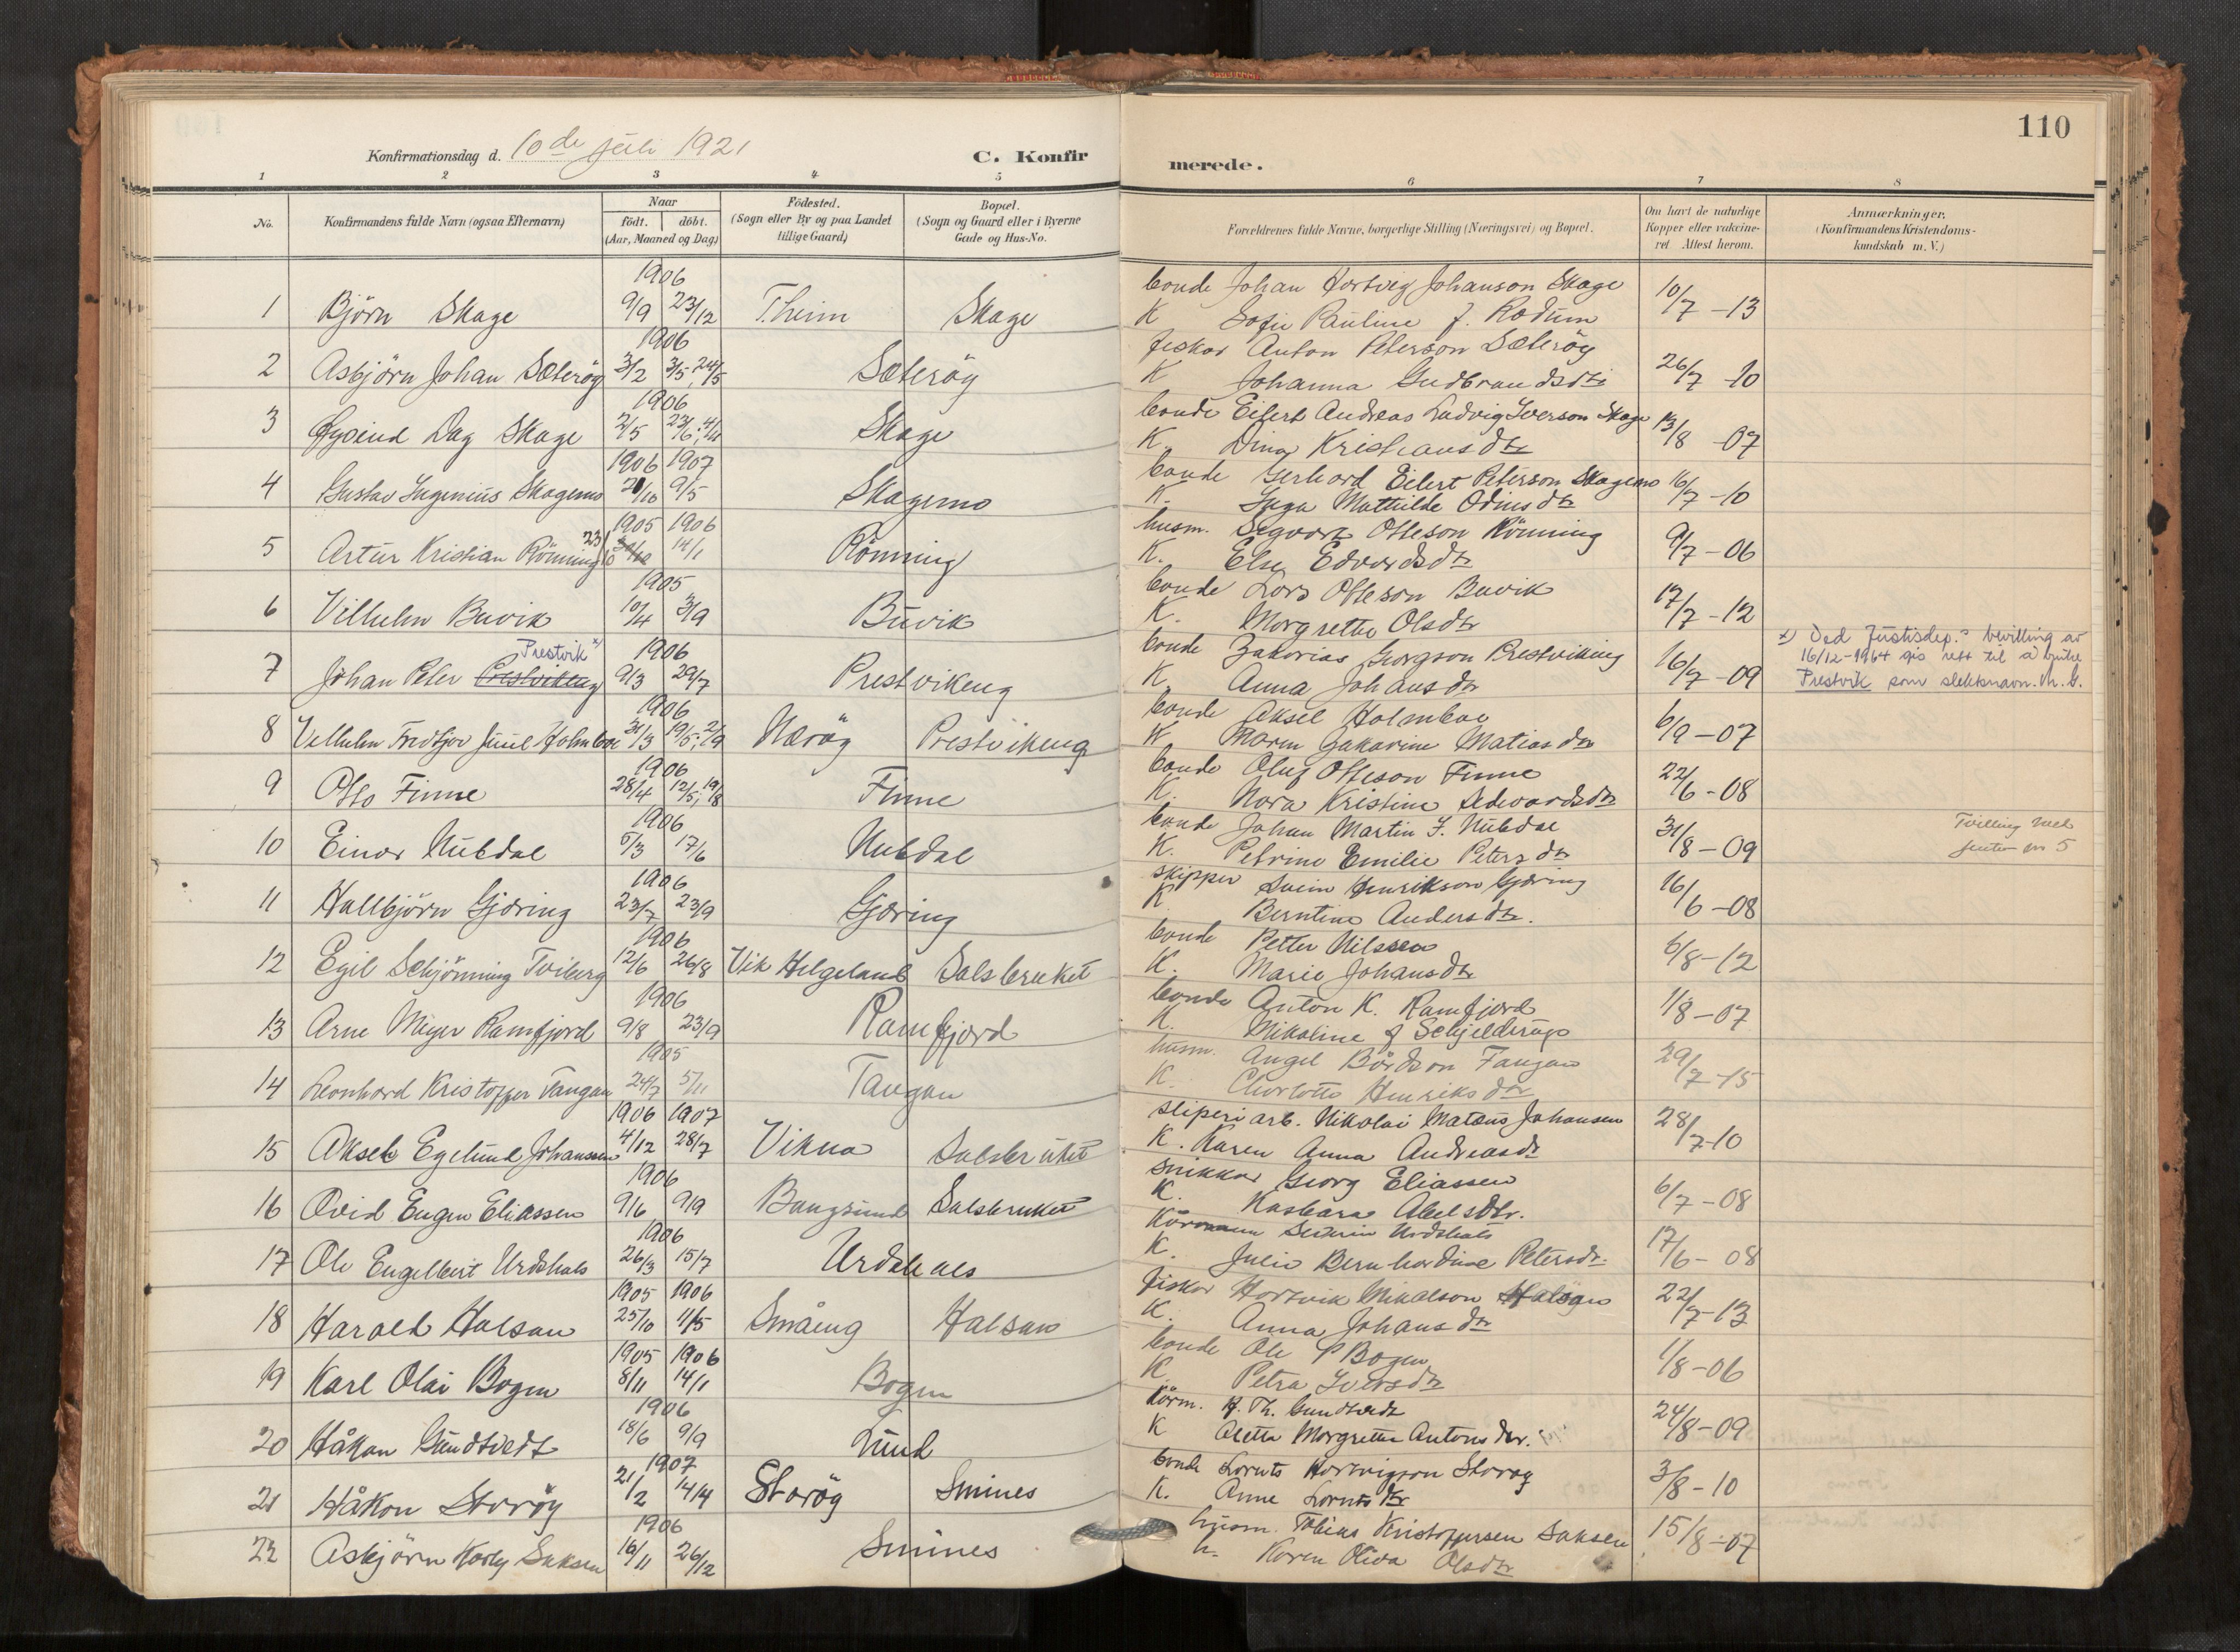 110
Konfirmationsdag d. 10de juli 1921 C. Konfir merede.
1 2 3 4 5 6 7 8
No. Konfirmandens fulde Navn (ogsaa Efternavn) Naar födt. döbt. (Aar, Maaned og Dag) Födested. (Sogn eller By og paa Landet tillige Gaard) Bopæl. (Sogn og Gaard eller i Byerne Gade og Hus-No. Forældrenes fulde Navne, borgerlige Stilling (Næringsvei) og Bopæl. Om havt de naturlige Kopper eller vaccineret. Attest herom. Anmærkninger. (Konfirmandens Kristendomskundskab m. V.)
1906 bonde Johan Hartvig Johanson Skage
1 Björn Skage 9/9 23/12 T.heim Skage K Sofie Pauline f. Rödum 10/7 -13
1906 fisker Anton Peterson Sæteröy
2 Asbjörn Johan Sæteröy 3/2 3/5, 24/5 Sæteröy K Johanna Gudbrandsdtr 26/7 -10
1906 bonde Eilert Andreas Ludvig Iverson Skage
3 Øyvind Dag Skage 2/5 23/6, Skage K. Dina Kristiansdtr 13/8 -07
1906 1907 bonde Gerhard Eilert Peterson Skagemo
4 Gustav Ingenius Skagemo 21/10 9/5 Skagemo K. Inga Mathilde Odinsdtr 16/7 -10
1905 1906 husm. Segvart Otteson Rönning
5 Artur Kristian Rönning 23/12 14/1 Rönning K. Else Edvardsdtr 9/7 -06
1905 bonde Lars Otteson Buvik
6 Vilhelm Buvik 10/4 3/9 Buvik K. Margrethe Olsdtr 17/7 -12
Prestvik x) 1906 bonde Zakarias Georgson Prestvikeng
7 Johan Peter Prestvikeng 9/3 29/7 Prestvikeng K. Anna Johansdtr 16/7 -09
x) Ved Justisdep.s bevilling av
16/12-1964 gis rett til å bruke
Prestvik som slektsnavn.
1906 bonde Aksel Holmboe
8 Vilhelm Fredtjov Juul Holmboe 31/3 19/5, 2/9 Nærøy Prestvikeng K Maren Jakarine Matiasdtr 6/9 -07
1906 bonde Oluf Otteson Finne
9 Otto Finne 28/4 12/5, 19/8 Finne K. Nora Kristine Sedvardsdtr 22/6 -08
1906 bonde Johan Martin J. Nubdal
10 Einar Nubdal 5/3 17/6 Nubdal K. Petrine Emilie Petersdtr 31/8 -09
Tvilling med
jente nr 5
1906 skipper Svein Henrikson Gjæring
11 Hallbjörn Gjæring 23/7 23/9 Gjæring K Berntine Andersdtr. 16/6 -08
1906 bonde Petter Nilssen
12 Egil Schjönning Tviberg 12/6 26/8 Vik Helgeland Salsbruket K. Marie Johansdtr 6/8 -12
1906 bonde Anton K. Ramfjord
13 Arne Meyer Ramfjord 9/8 23/9 Ramfjord K. Nikoline f Schjelderup 1/8 -07
1905 husm. Angel Bårdson Tangan
14 Leonhard Kristoffer Tangan 24/7 5/11 Tangan K. Charlotte Henriksdtr 29/7 -15
1906 1907 sliperiarb. Nikolai Mateus Johansen
15 Aksel Egelund Johanssen 4/12 28/7 Vikna Salsbruket K. Karen Anna Andreasdtr 28/7 -10
1906 snikkar Georg Eliassen
16 Ovid Eugen Eliassen 9/6 9/9 Bangsund Salsbruket K. Kasbara Abelsdtr. 6/7 -08
1906 Körmann Severin Urdshals
17 Ole Engelbert Urdshals 26/3 15/7 Urdshals K. Julie Bernhardine Petersdtr 17/6 -08
1905 1906 fisker Hartvik Mikalson Halsan
18 Harald Halsan 25/10 11/5 Småeng Halsan K. Anna Johansdtr 22/7 -13
1905 1906 bonde Ole P Bogen
19 Karl Olai Bogen 8/11 14/1 Bogen K. Petra Iversdtr 1/8 -06
1906 Körm. H. Th. Gundtvedt
20 Håkon Gundtvedt 18/6 9/9 Lund K Aletta Margrette Antonsdtr. 24/8 -09
1907 bonde Lornts Hartvigson Storøy
21 Håkon Storöy 21/2 14/4 Storöy Smines K. Anne Lorntsdtr 3/8 -10
1906 husm. Tobias Kristoffersen Saksen
22 Asbjörn Karly Saksen 16/11 26/12 Smines K. Karen Oliva Olsdtr 15/8 -07